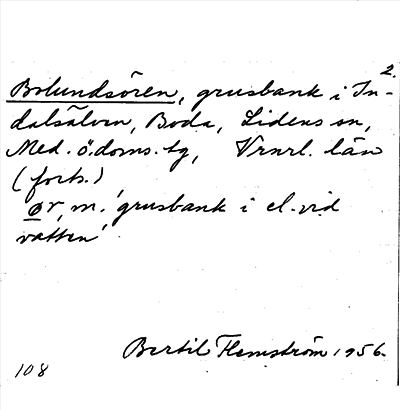 2.
Bolundsören, grusbank i In-
dalsälven, Boda, Lidens sn,
Med. ö. doms. tg, Vrnrl. län
(forts.)
ør, m. 'grusbank i el. vid
vatten'
Bertil Flemström 1956.
108